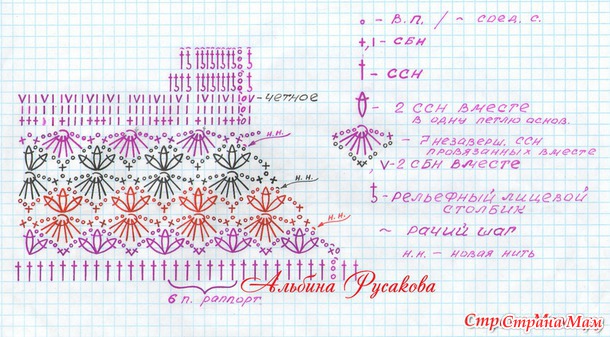 о - В.П. / ⌒ соед. с.
+, ı - СБН
- ССН
- 2 ССН вместе
в одну петлю основ.
- 7 незаверш. ССН
провязанных вместе
v - 2 СБН вместе
- рельефный лицевой
столбик
~ рачий шаг
н.н. - новая нить
v - четное
н.н.
н.н.
н.н.
6 п. раппорт
Альбина Русакова
Страна Мам